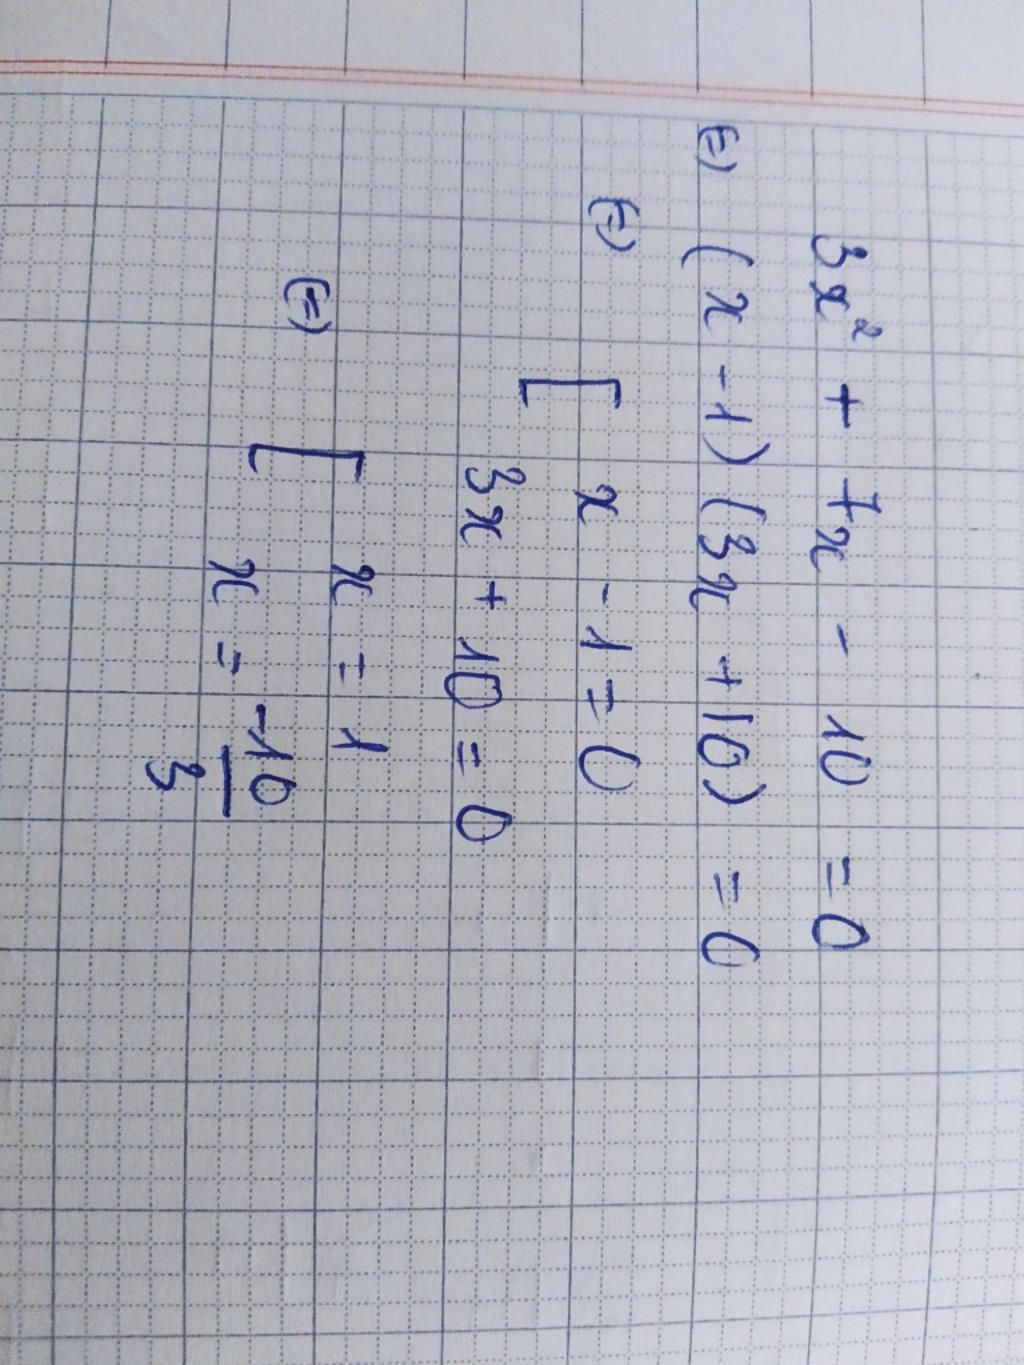 3x² + 7x - 10 = 0
(=) (x - 1)(3x + 10) = 0
(=) [ x - 1 = 0
3x + 10 = 0
(=) [ x = 1
x = -10/3